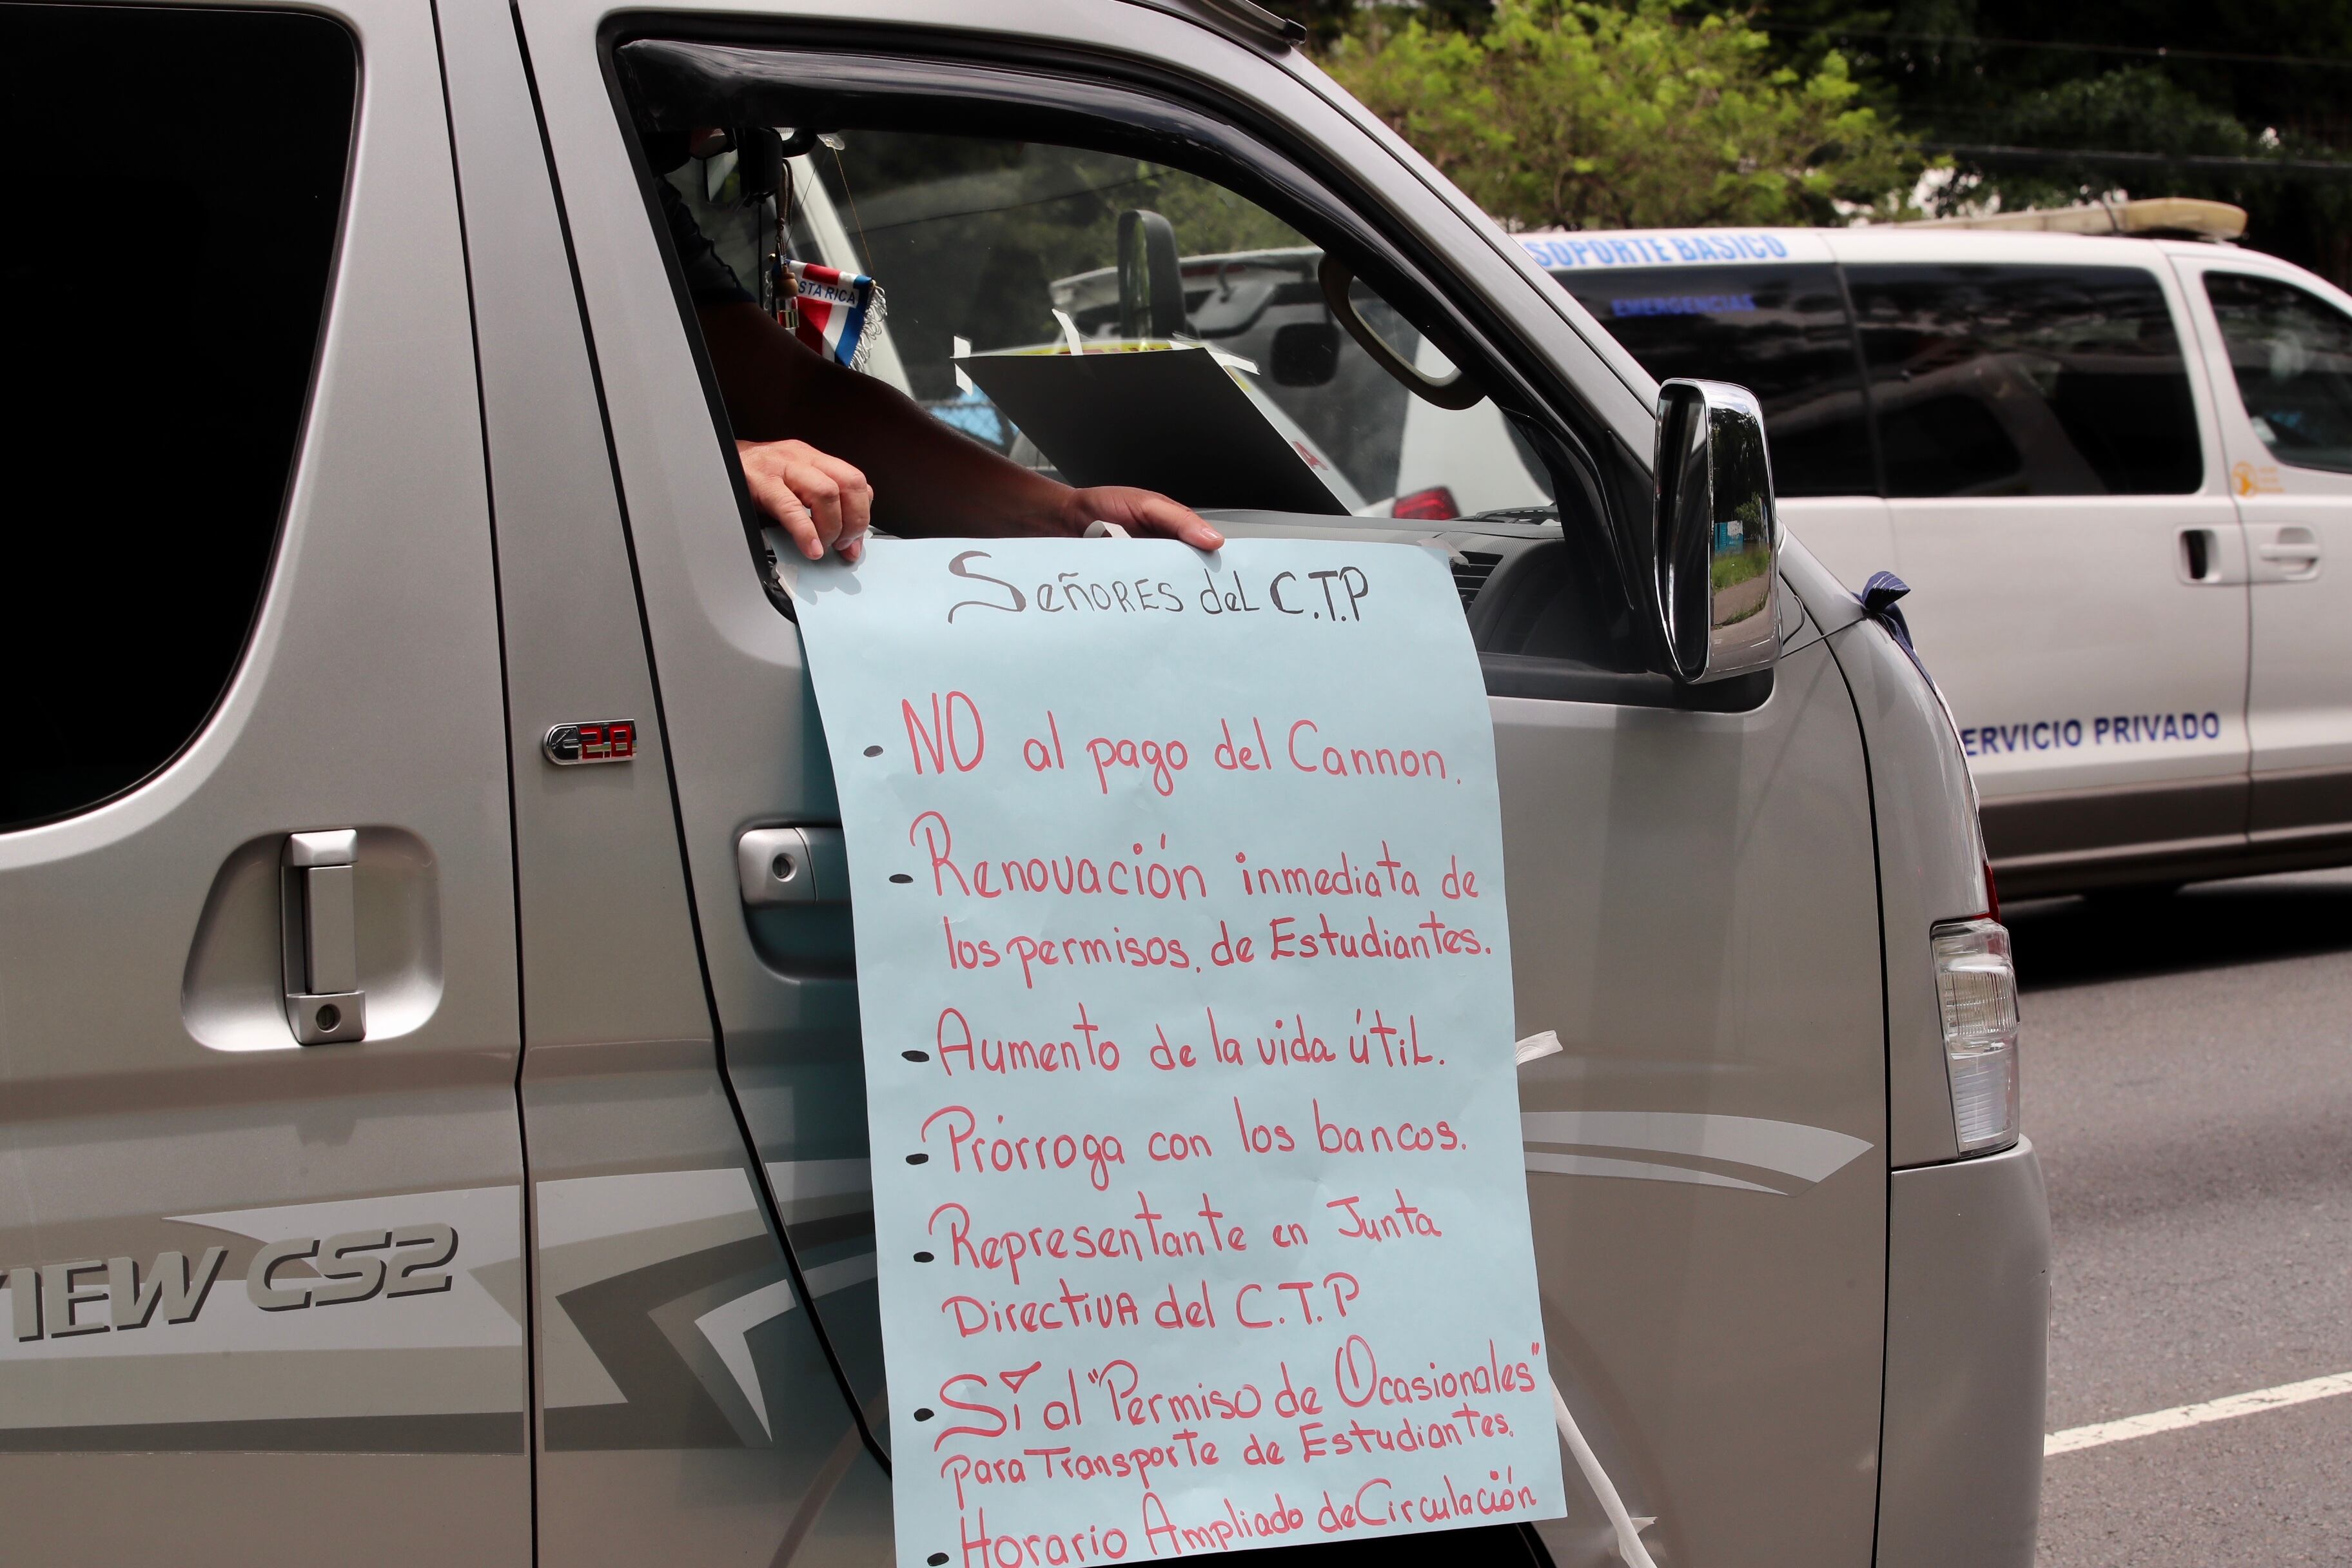 Señores del C.T.P
- NO al pago del Cannon.
- Renovación inmediata de
los permisos, de Estudiantes.
- Aumento de la vida útil.
- Prórroga con los bancos.
- Representante en Junta
Directiva del C.T.P
- Sí al "Permiso de Ocasionales"
para Transporte de Estudiantes.
- Horario Ampliado de Circulación
STA RICA
SOPORTE BASICO
EMERGENCIAS
ERVICIO PRIVADO
2.8
VIEW CS2